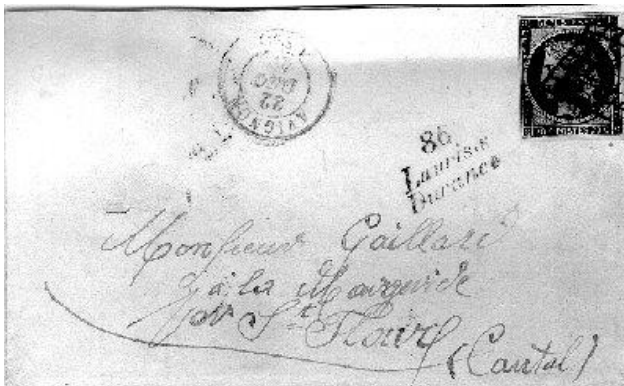 AVIGNON
22
DEC
86
Lauris s
Durance
Monsieur Gaillard
à la Margeride
par St Flour
(Cantal)